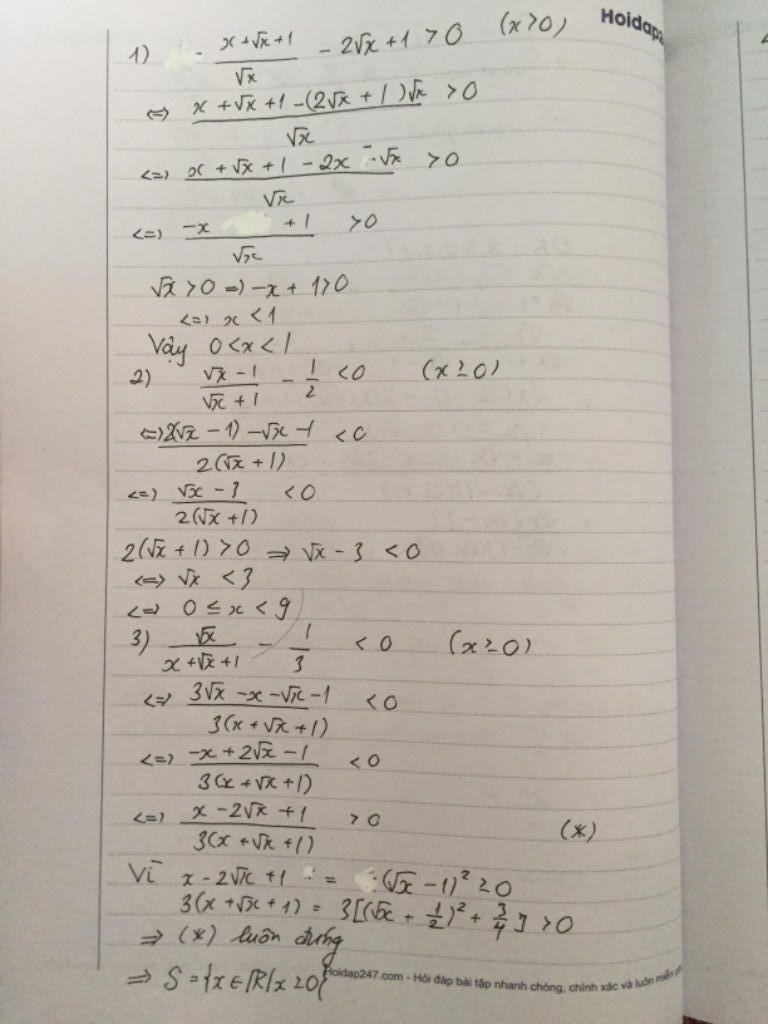 Hoidap
1) - x+√x+1/√x - 2√x+1 > 0 (x>0)
⇔ x+√x+1-(2√x+1)√x/√x > 0
<=> x+√x+1-2x-√x/√x > 0
<=> -x +1/√x > 0
√x > 0 => -x + 1 > 0
<=> x < 1
Vậy 0 < x < 1
2) √x-1/√x+1 - 1/2 < 0 (x ≥ 0)
<=> 2(√x-1)-√x-1/2(√x+1) < 0
<=> √x-3/2(√x+1) < 0
2(√x+1) > 0 => √x-3 < 0
<=> √x < 3
<=> 0 ≤ x < 9
3) √x/x+√x+1 - 1/3 < 0 (x ≥ 0)
<=> 3√x-x-√x-1/3(x+√x+1) < 0
<=> -x+2√x-1/3(x+√x+1) < 0
<=> x-2√x+1/3(x+√x+1) > 0 (*)
Vì x-2√x+1 = (√x-1)² ≥ 0
3(x+√x+1) = 3[(√x+1/2)²+3/4] > 0
=> (*) luôn đúng
=> S = {x∈R/x ≥ 0}
Hoidap247.com - Hỏi đáp bài tập nhanh chóng, chính xác và luôn miễn